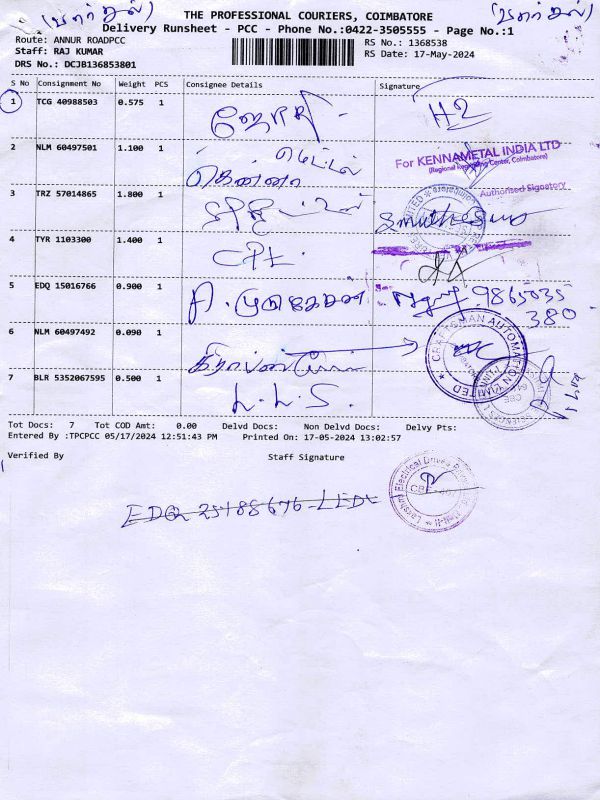 (பார்சல்)
(பார்சல்)
THE PROFESSIONAL COURIERS, COIMBATORE
Delivery Runsheet - PCC - Phone No.:0422-3505555 - Page No.:1
Route: ANNUR ROADPCC
RS No.: 1368538
Staff: RAJ KUMAR
RS Date: 17-May-2024
DRS No.: DCJB136853801
S No Consignment No Weight PCS Consignee Details Signature
1 TCG 40988503 0.575 1
2 NLM 60497501 1.100 1 கென்னா மெட்டல்
For KENNAMETAL INDIA LTD
(Regional Reporting Center, Coimbatore)
Authorised Signatory
3 TRZ 57014865 1.800 1
4 TYR 1103300 1.400 1
5 EDQ 15016766 0.900 1 A. முருகேசன் 9865035
380
6 NLM 60497492 0.090 1
CRAFTSMAN AUTOMATION LIMITED
7 BLR 5352067595 0.500 1 L.L.S.
Tot Docs: 7 Tot COD Amt: 0.00 Delvd Docs: Non Delvd Docs: Delvy Pts:
Entered By :TPCPCC 05/17/2024 12:51:43 PM Printed On: 17-05-2024 13:02:57
Verified By Staff Signature
Lakshmi Electrical Drives
EDQ 25188676 -